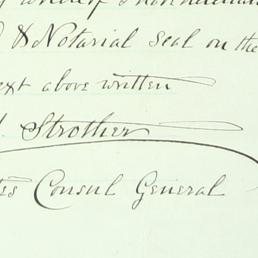 & Notarial Seal on the
ext above written
Strother
tes Consul General